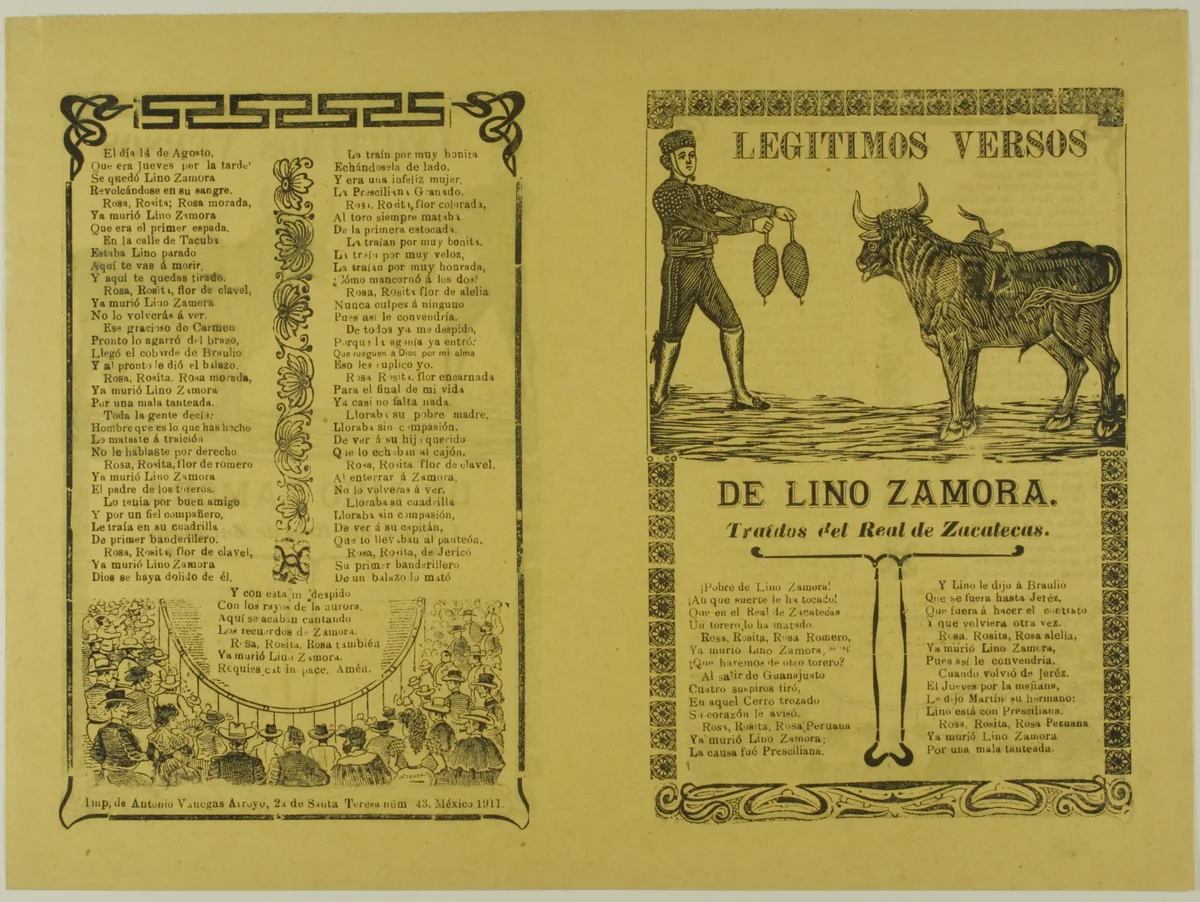 El día 14 de Agosto,
Que era Jueves por la tarde'
Se quedó Lino Zamora
Revolcándose en su sangre.
Rosa, Rosita; Rosa morada,
Ya murió Lino Zamora
Que era el primer espada.
En la calle de Tacuba
Estaba Lino parado
Aquí te vas á morir,
Y aquí te quedas tirado.
Rosa, Rosita, flor de clavel,
Ya murió Lino Zamora
No lo volverás á ver.
Ese gracioso de Carmen
Pronto lo agarró del brazo,
Llegó el cobarde de Braulio
Y al pronto le dió el balazo.
Rosa, Rosita. Rosa morada,
Ya murió Lino Zamora
Por una mala tanteada.
Toda la gente decía:
Hombre que es lo que has hecho
Lo mataste á traición
No le hablaste por derecho.
Rosa, Rosita, flor de romero
Ya murió Lino Zamora
El padre de los toreros.
Lo tenía por buen amigo
Y por un fiel compañero,
Le traía en su cuadrilla
De primer banderillero.
Rosa, Rosita, flor de clavel,
Ya murió Lino Zamora
Dios se haya dolido de él.
La traín por muy bonita
Echándosela de lado.
Y era una infeliz mujer,
La Presciliana Granado.
Rosa. Rosita, flor colorada,
Al toro siempre mataba
De la primera estocada.
La traían por muy bonita.
La traía por muy veloz,
La traían por muy honrada,
¿Cómo mancornó á los dos?
Rosa, Rosita flor de alelia
Nunca culpes á ninguno
Pues así le convendría.
De todos ya me despido,
Porque la agonía ya entró:
Que rueguen á Dios por mi alma
Eso les suplico yo.
Rosa Rosita, flor encarnada
Para el final de mi vida
Ya casi no falta nada.
Lloraba su pobre madre,
Lloraba sin compasión.
De ver á su hijo querido
Que lo echaban al cajón.
Rosa, Rosita flor de clavel,
Al enterrar á Zamora,
No lo volveras á ver.
Lloraba su cuadrilla
Lloraba sin compasión,
De ver á su capitán,
Que lo llevaban al panteón.
Rosa, Rosita, de Jericó
Su primer banderillero
De un balazo lo mató
Y con esta m despido
Con los rayos de la aurora,
Aquí se acaban cantando
Los recuerdos de Zamora.
Rosa, Rosita. Rosa también
Ya murió Lino Zamora.
Requiescat in pace, Amén.
Imp, de Antonio Vanegas Arroyo, 2a de Santa Teresa núm 43. México 1911.
LEGITIMOS VERSOS
DE LINO ZAMORA.
Traídos del Real de Zacatecas.
¡Pobre de Lino Zamora!
¡Ah que suerte le ha tocado!
Que en el Real de Zacatecas
Un torero lo ha matado.
Rosa, Rosita, Rosa Romero,
Ya murió Lino Zamora,
¡Que haremos de otro torero?
Al salir de Guanajuato
Cuatro suspiros tiró,
En aquel Cerro trozado
Su corazón le avisó.
Rosa, Rosita, Rosa Peruana
Ya murió Lino Zamora;
La causa fué Presciliana.
Y Lino le dijo á Braulio
Que se fuera hasta Jeréz,
Que fuera á hacer el contrato
Y que volviera otra vez.
Rosa. Rosita, Rosa alelia,
Ya murió Lino Zamora,
Pues así le convendría.
Cuando volvió de Jeréz.
El Jueves por la mañana,
Le dijo Martín su hermano:
Lino está con Presciliana.
Rosa, Rosita, Rosa Peruana
Ya murió Lino Zamora
Por una mala tanteada.